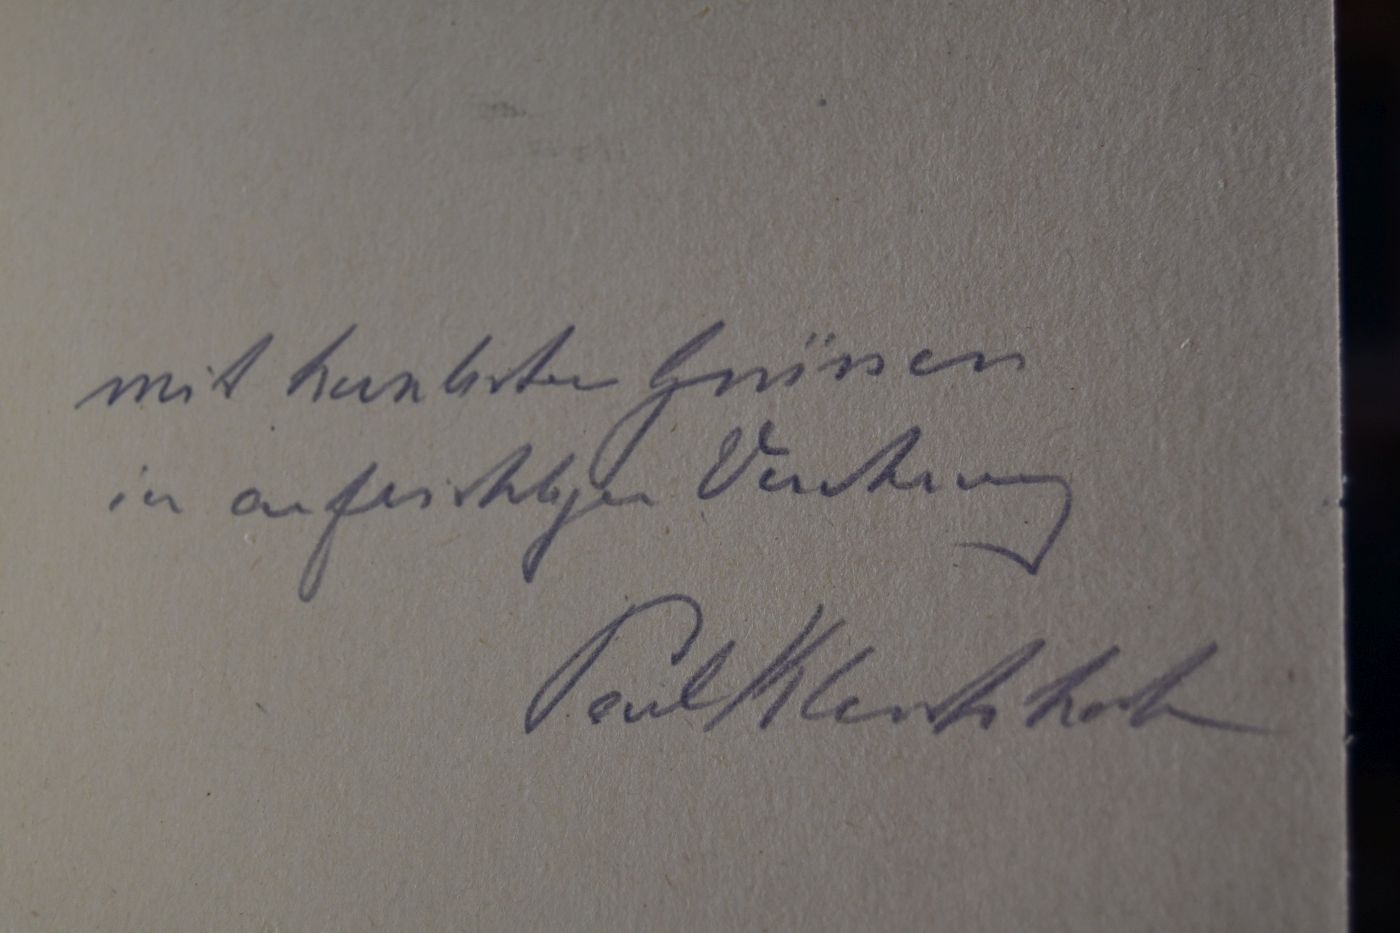 mit herzlichen Grüssen
in aufrichtiger Verehrung
Paul